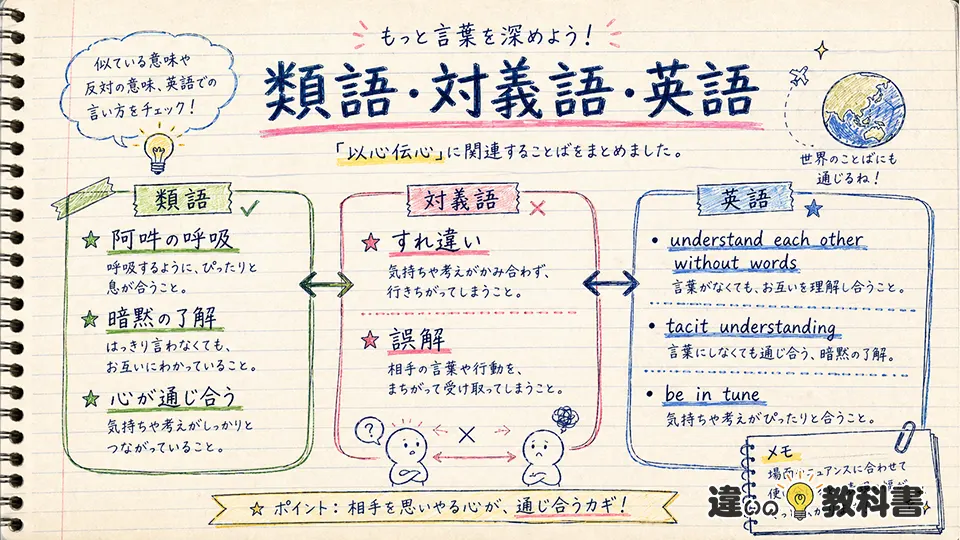 もっと言葉を深めよう！
類語・対義語・英語
似ている意味や
反対の意味、英語での
言い方をチェック！
「以心伝心」に関連することばをまとめました。
世界のことばにも
通じるね！
類語
阿吽の呼吸
呼吸するように、ぴったりと
息が合うこと。
暗黙の了解
はっきり言わなくても、
お互いにわかっていること。
心が通じ合う
気持ちや考えがしっかりと
つながっていること。
対義語
すれ違い
気持ちや考えがかみ合わず、
行きちがってしまうこと。
誤解
相手の言葉や行動を、
まちがって受け取ってしまうこと。
?
英語
• understand each other
without words
言葉がなくても、お互いを理解し合うこと。
• tacit understanding
言葉にしなくても通じ合う、暗黙の了解。
• be in tune
気持ちや考えがぴったりと合うこと。
メモ
に合わせて
違いの教科書
ポイント：相手を思いやる心が、通じ合うカギ！